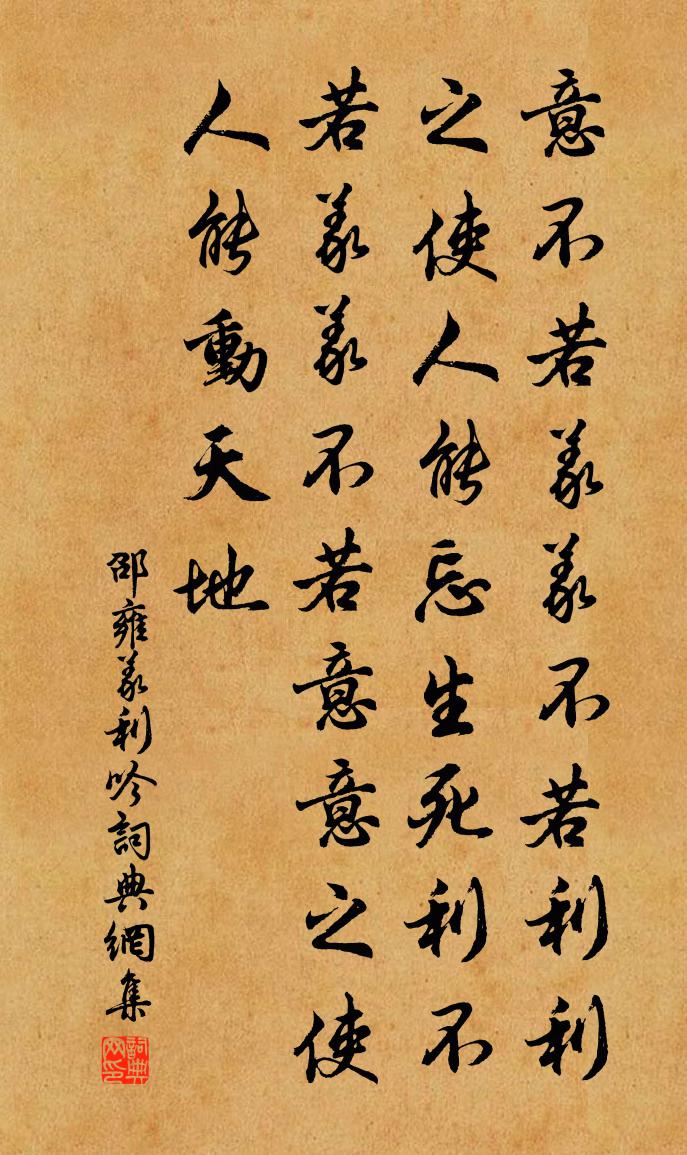 意不若義義不若利利
之使人能忘生死利不
若義義不若意意之使
人能動天地
邵雍義利吟詞典網集
詞典網印